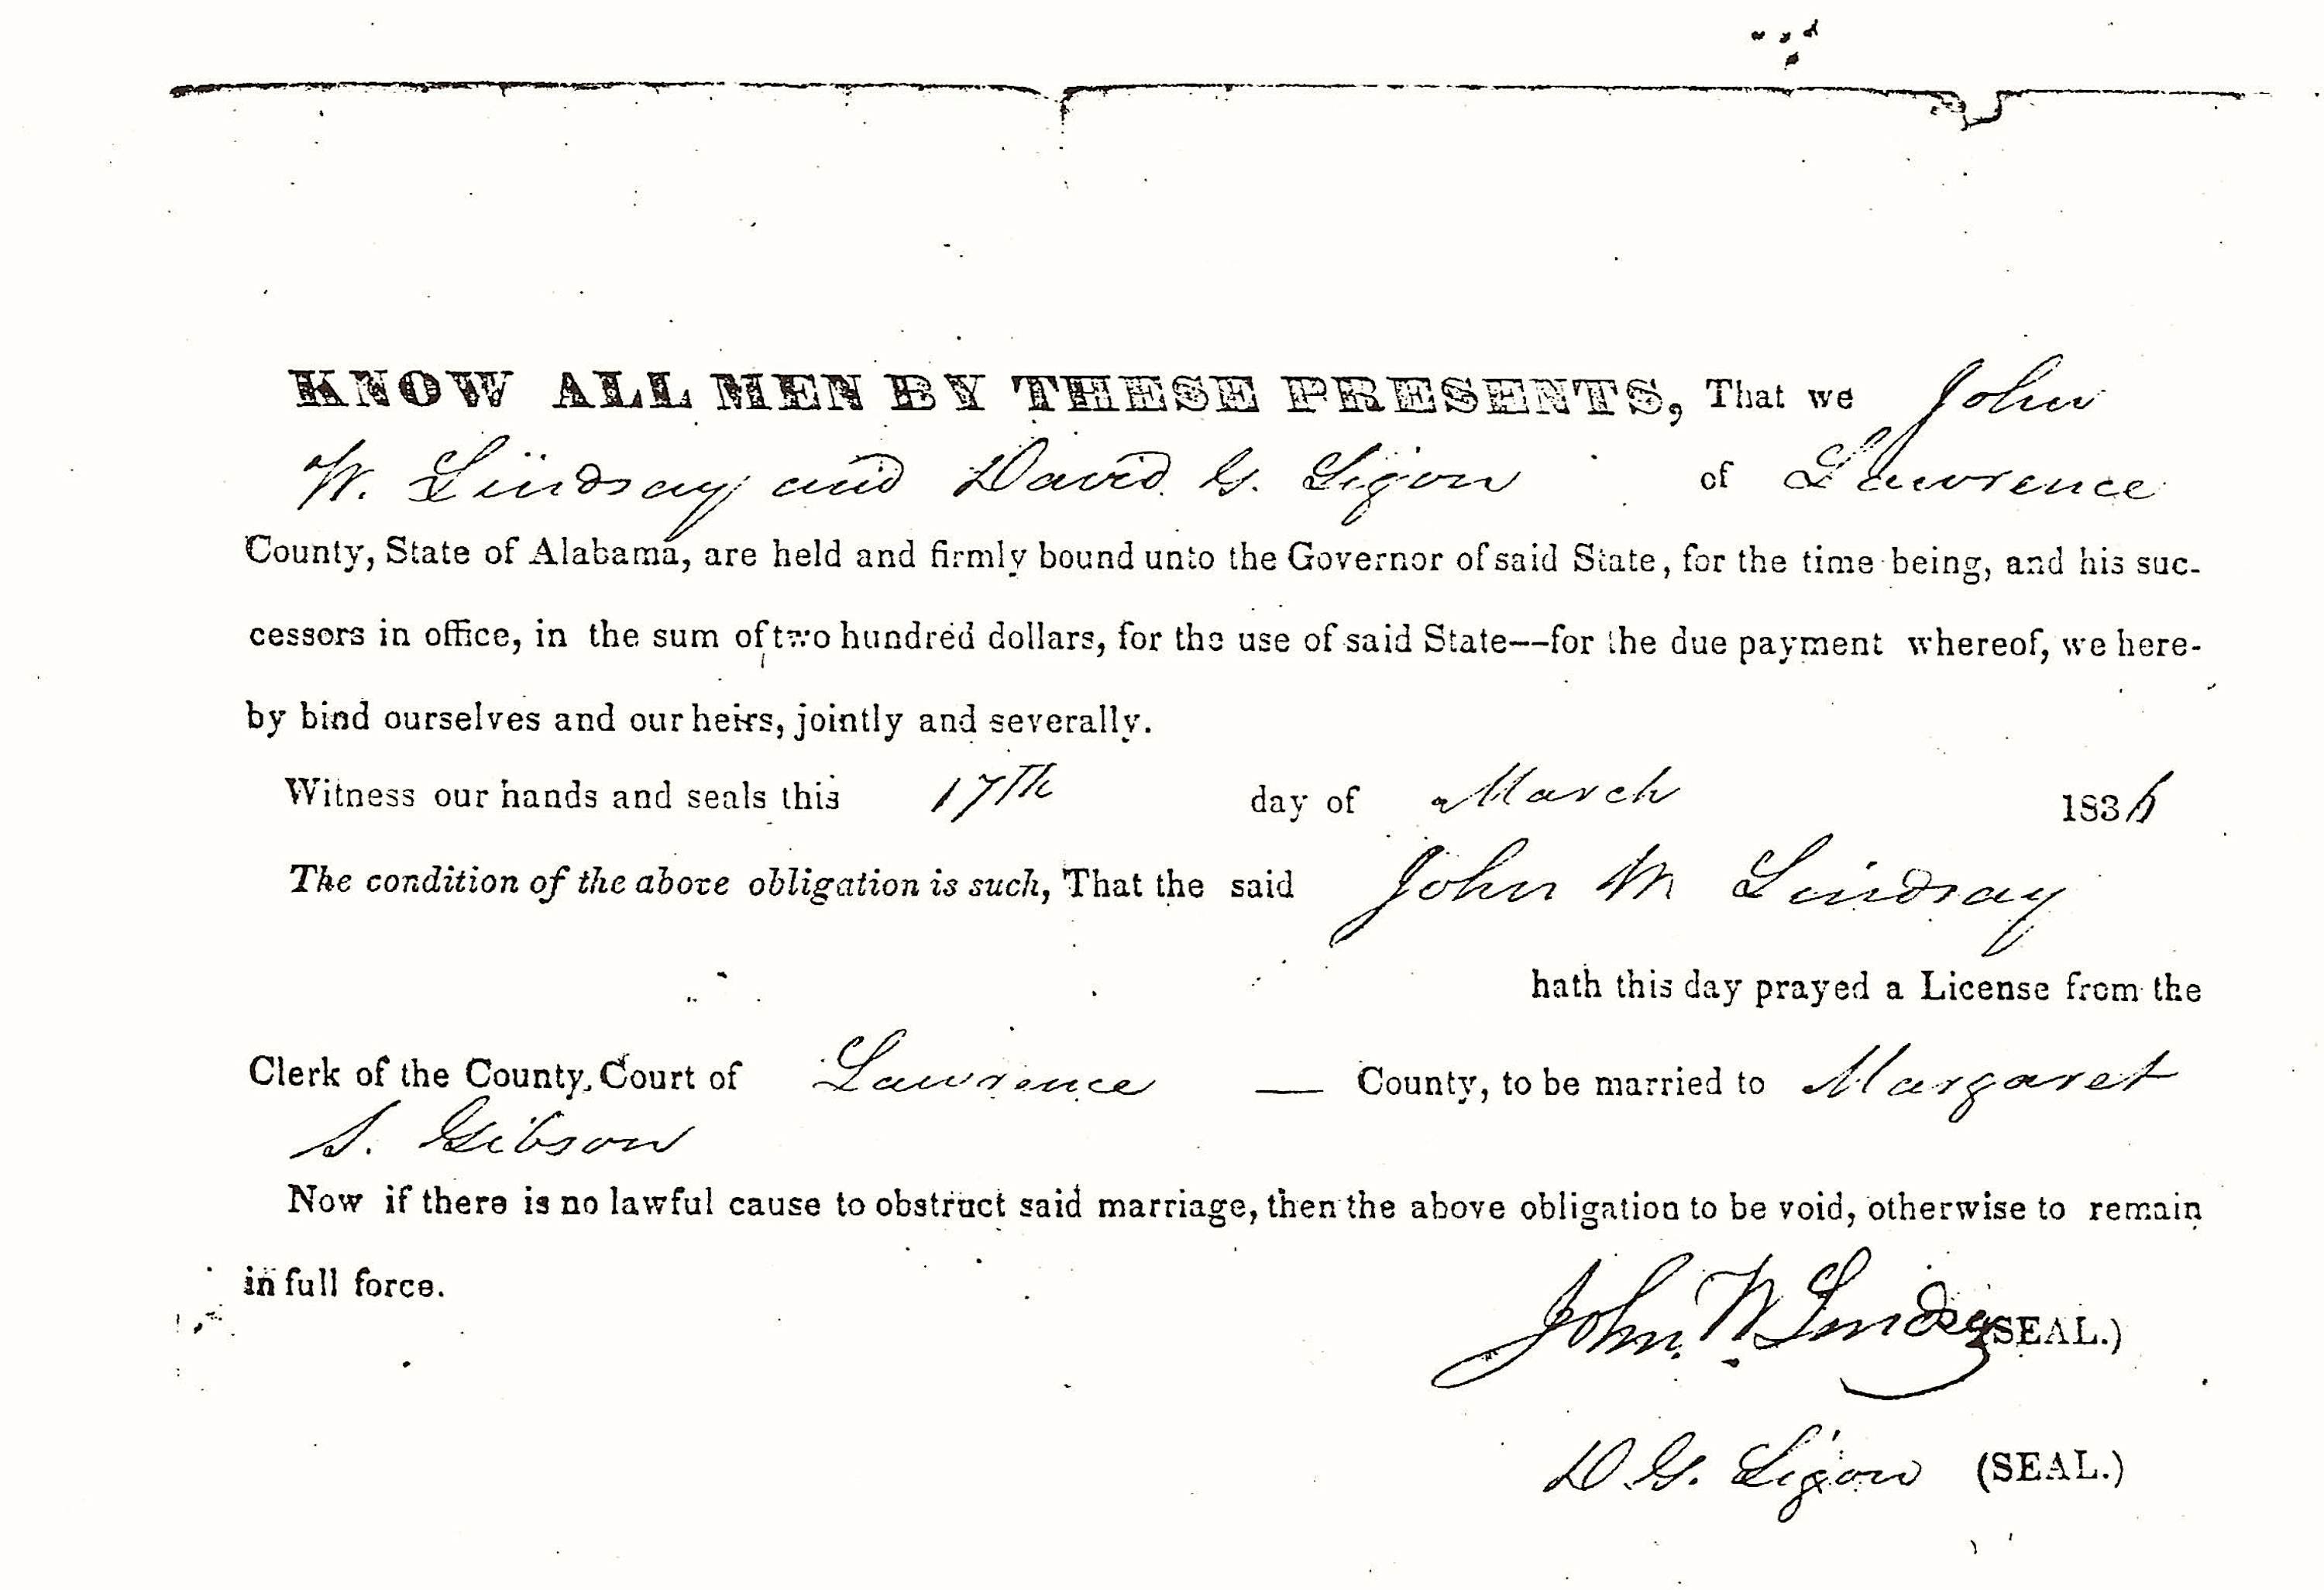 KNOW ALL MEN BY THESE PRESENTS, That we John
W. Lindsay and David G. Ligon of Lawrence
County, State of Alabama, are held and firmly bound unto the Governor of said State, for the time being, and his suc-
cessors in office, in the sum of two hundred dollars, for the use of said State--for the due payment whereof, we here-
by bind ourselves and our heirs, jointly and severally.
Witness our hands and seals this 17th day of March 1836
The condition of the above obligation is such, That the said John W Lindsay
hath this day prayed a License from the
Clerk of the County Court of Lawrence — County, to be married to Margaret
S. Gibson
Now if there is no lawful cause to obstruct said marriage, then the above obligation to be void, otherwise to remain
in full force.
John W Lindsay (SEAL.)
D. G. Ligon (SEAL.)